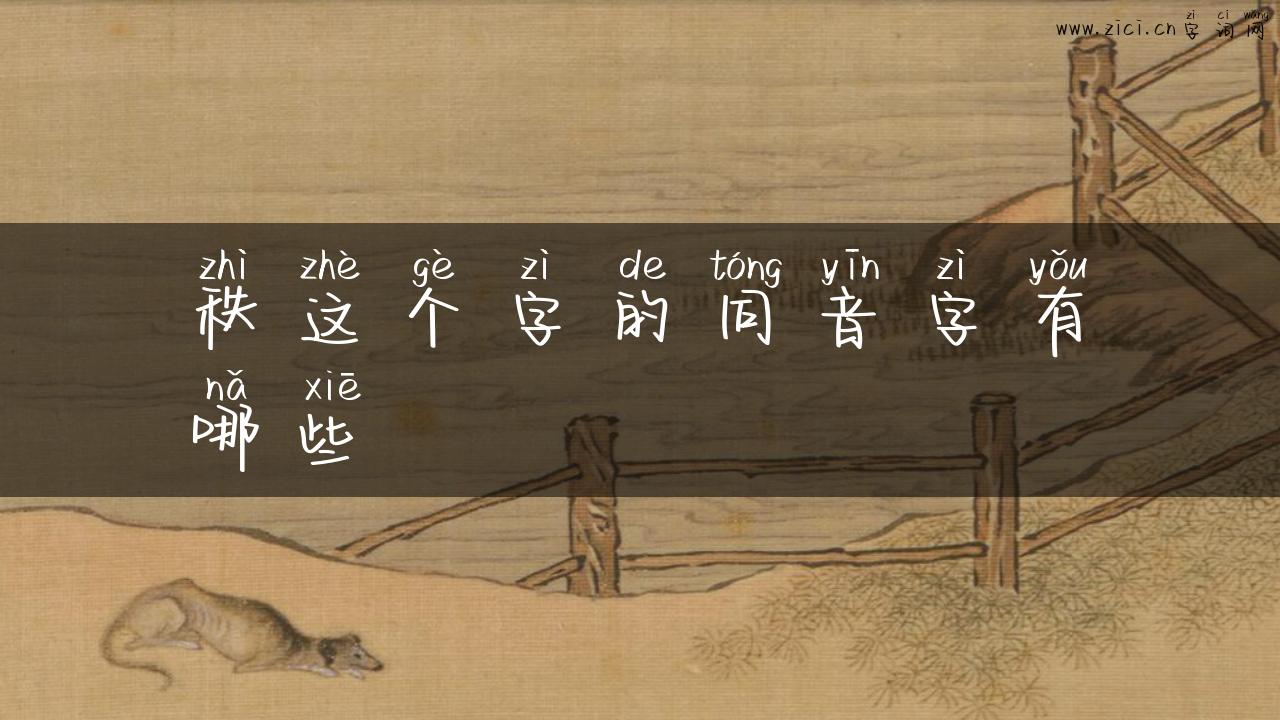 zì cí wǎng
www.zici.cn 字词网
zhì zhè gè zì de tóng yīn zì yǒu
秩这个字的同音字有
nǎ xiē
哪些